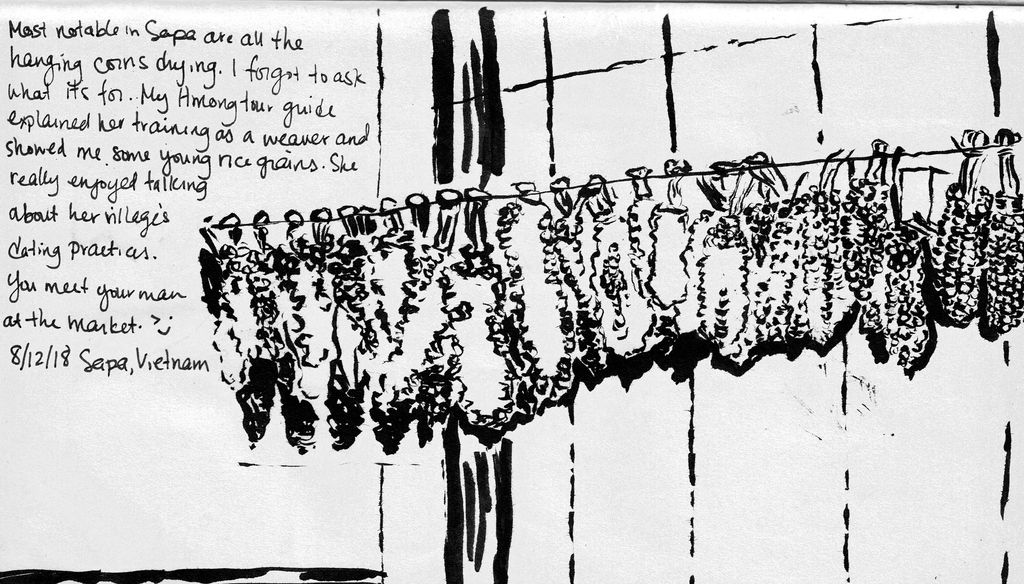 Most notable in Sapa are all the
hanging corns drying. I forgot to ask
what it's for.. My Hmong tour guide
explained her training as a weaver and
showed me some young rice grains. She
really enjoyed talking
about her village's
dating practices.
You meet your man
at the market. >;)
8/12/18 Sapa, Vietnam